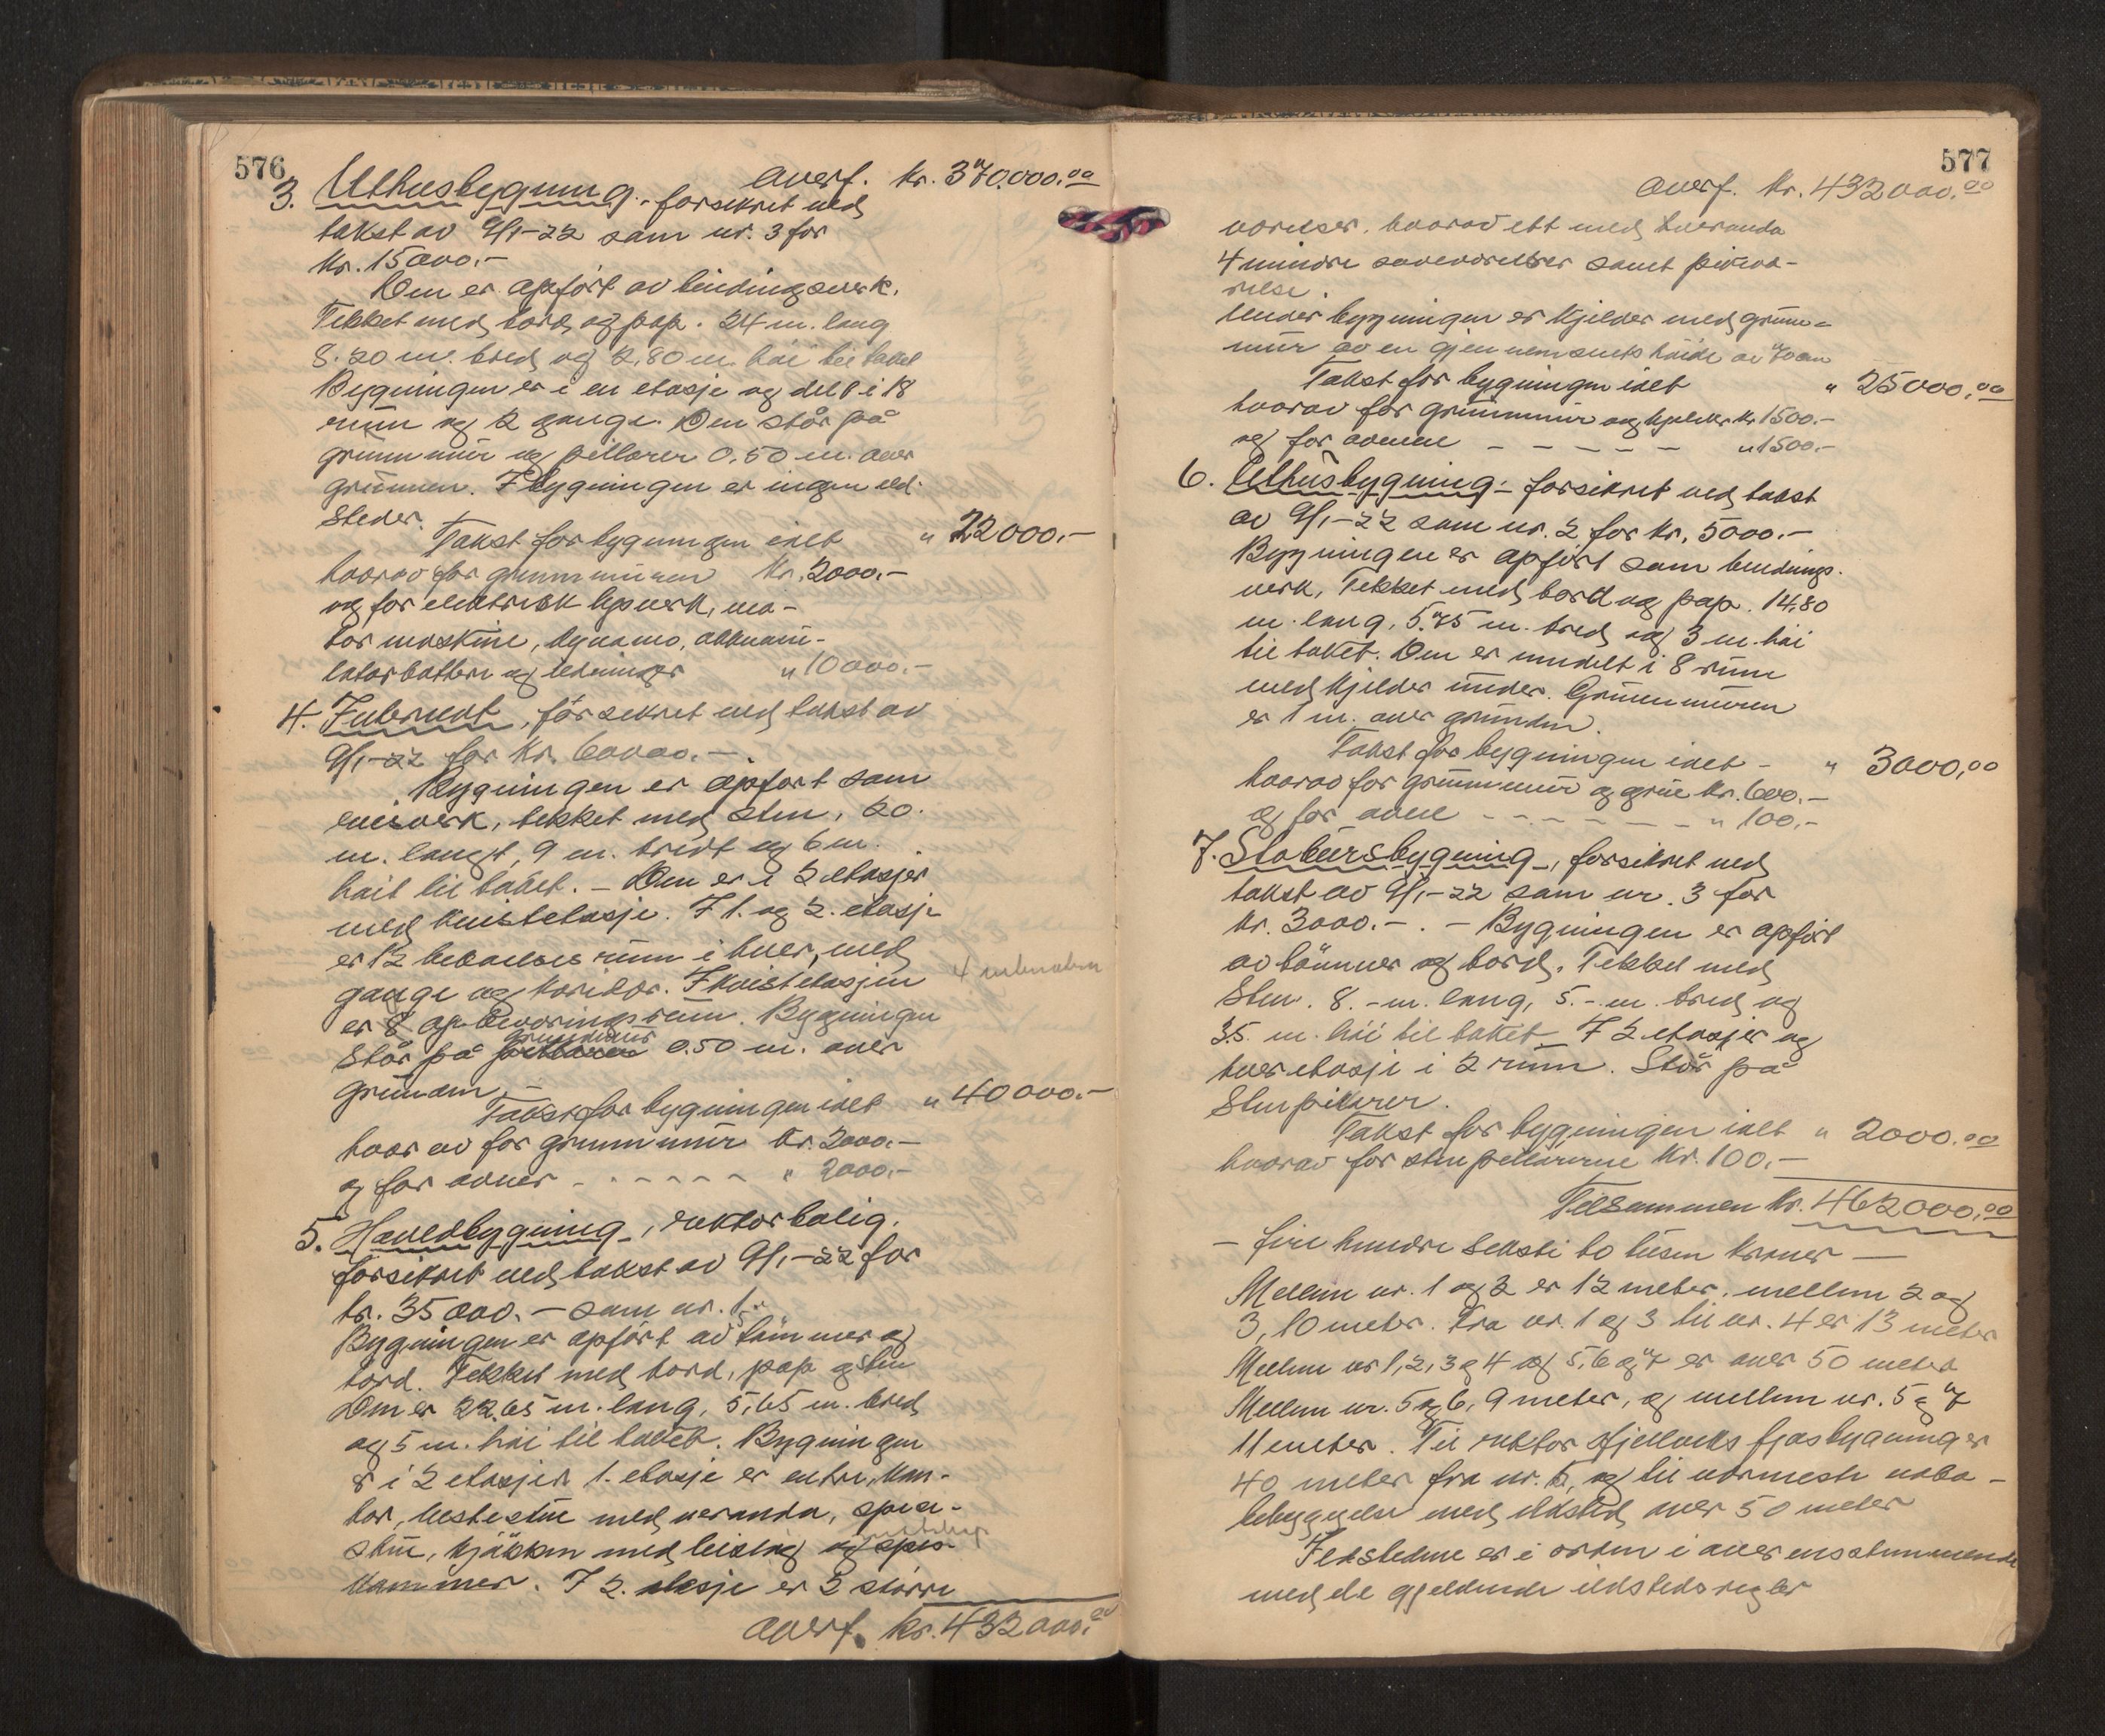 576
overf. kr. 370.000.00
3. Uthusbygning, forsikret ved
takst av 9/1-22 som nr. 3 for
kr. 15000.-
Den er opført av bindingsverk.
Tekket med bord og pap. 24 m. lang
8.20 m. bred og 2,80 m. høi til taket
Bygningen er i en etasje og delt i 18
rum og 2 gange. Den står på
grunnmur og pillarer 0,50 m. over
grunnen. I bygningen er ingen ild-
steder.
Takst for bygningen ialt " 22000.-
hvorav for grunnmuren kr. 2000.-
og for elektrisk lysverk, mo-
tor maskine, dynamo, akkumu-
latorbatteri og ledninger " 10000.-
4. Internat, forsikret ved takst av
9/1-22 for kr. 60000.-
Bygningen er opført som
reisverk, tekket med sten, 20.
m. langt, 9 m. bredt og 6 m.
høit til taket. - Den er i 2 etasjer
med kvistetasje. I 1. og 2. etasje
er 12 beboelsesrum i hver, med
gange og koridor. I kvistetasjen
er 8 opbevaringsrum. Bygningen
står på grundmur 0.50 m. over
grunden. -
Takst for bygningen ialt " 40000.-
hvorav for grunnmur kr. 2000.-
og for ovner - - - - - - " 2000.-
5. Hovedbygning, rektorbolig.
forsikret ved takst av 9/1-22 for
kr. 35000.- som nr. 1.
Bygningen er opført av tømmer og
bord. Tekket med bord, pap og sten
Den er 22.65 m. lang, 5,65 m. bred
og 5 m. høi til taket. Bygningen
er i 2 etasjer. 1. etasje er entre, kon-
tor, bestestue med veranda, spise-
stue, kjøkken med leising og spis-
kammer. I 2. etasje er 2 større
overf. kr. 432000.00
577
overf. kr. 432000.00
værelser, hvorav ett med veranda
4 mindre soveværelser samt pikevæ-
relse.
Under bygningen er kjelder med grunn-
mur av en gjennemsnits høide av 70 cm
Takst for bygningen ialt " 25000,00
hvorav for grunnmur og kjelder kr 1500.-
og for ovnene - - - - - " 1500.-
6. Uthusbygning - forsikret ved takst
av 9/1-22 som nr. 2 for kr. 5000.-
Bygningen er opført som bindings-
verk, Tekket med bord og pap. 14,80
m. lang, 5.75 m. bred og 3 m. høi
til taket. Den er inndelt i 8 rum
med kjelder under. Grunnmuren
er 1 m. over grunden.
Takst for bygningen ialt - " 3000,00
hvorav for grunnmur og grue kr. 600.-
og for ovne - - - - - - " 100,-
7. Stabursbygning, forsikret ved
takst av 9/1-22 som nr. 3 for
kr. 3000.- . - Bygningen er opført
av tømmer og bord. Tekket med
Sten. 8. - m. lang, 5. - m. bred og
3.5. m. høi til taket. I 2 etasjer og
hver etasje i 2 rum. Står på
Stenpilarer.
Takst for bygningen ialt " 2000.00
hvorav for stenpillarerne kr. 100.-
Tilsammen kr. 462000,00
- fire hundre seksti to tusen kroner -
Mellem nr. 1 og 2 er 12 meter, mellem 2 og
3, 10 meter. Fra nr. 1 og 3 til nr. 4 er 13 meter
Mellem nr 1, 2, 3 og 4 og 5, 6 og 7 er over 50 meter
Mellem nr. 5 og 6, 9 meter, og mellem nr. 5 og 7
11 meter. Til rektor fjøsbygning er
40 meter fra nr. 5, og til nærmeste nabo-
bebyggelse med ildsted over 50 meter
Ildstedene er i orden i overensstemmende
med de gjeldende ildstedsregler